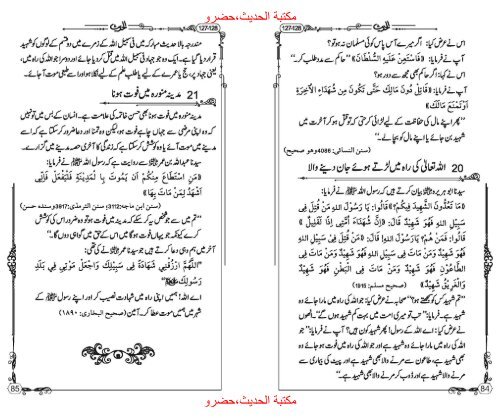 مكتبة الحديث،حضرو
127-128
اس نے عرض کیا: اگر میرے آس پاس کوئی مسلمان نہ ہو تو؟
آپ نے فرمایا: «فَاسْتَعِنْ عَلَيْهِ السُّلْطَانَ» ”حاکم سے مدد طلب کر۔“
اس نے عرض کیا: گر حاکم بھی مجھ سے دور ہو؟
آپ نے فرمایا: «قَاتِلْ دُونَ مَالِكَ حَتَّى تَكُونَ مِنْ شُهَدَاءِ الْآخِرَةِ
أَوْ تَمْنَعَ مَالَكَ»
”پھر اپنے مال کی حفاظت کے لیے لڑائی کر حتی کہ تو قتل ہو کر آخرت میں
شہید بن جائے یا اپنے مال کو بچا لے۔“
(سنن النسائي: 4086 وهو صحيح)
20 اللہ تعالیٰ کی راہ میں لڑتے ہوئے جان دینے والا
سیدنا ابو ہریرہ رضی اللہ عنہ بیان کرتے ہیں کہ رسول اللہ ﷺ نے فرمایا:
«مَا تَعُدُّونَ الشَّهِيدَ فِيكُمْ؟» قَالُوا: يَا رَسُولَ اللهِ! مَنْ قُتِلَ فِي
سَبِيلِ اللهِ فَهُوَ شَهِيدٌ قَالَ: «إِنَّ شُهَدَاءَ أُمَّتِي إِذًا لَقَلِيلٌ»
قَالُوا: فَمَنْ هُمْ؟ يَا رَسُولَ اللهِ! قَالَ: «مَنْ قُتِلَ فِي سَبِيلِ اللهِ
فَهُوَ شَهِيدٌ وَمَنْ مَاتَ فِي سَبِيلِ اللهِ فَهُوَ شَهِيدٌ وَمَنْ مَاتَ فِي
الطَّاعُونِ فَهُوَ شَهِيدٌ وَمَنْ مَاتَ فِي الْبَطْنِ فَهُوَ شَهِيدٌ
وَالْغَرِيقُ شَهِيدٌ» (صحيح مسلم: 1915)
”تم شہید کس کو سمجھتے ہو؟“ صحابہ نے عرض کیا: جو اللہ کی راہ میں مارا جائے وہ
شہید ہے۔ آپ نے فرمایا: ”تب تو میری امت میں بہت کم شہید ہوں گے۔“ انھوں
نے عرض کیا: اے اللہ کے رسول! پھر شہید کون ہیں؟ آپ نے فرمایا: ”جو اللہ
کی راہ میں مارا جائے وہ شہید ہے، اور جو اللہ کی راہ میں مر جائے وہ بھی شہید ہے
، جو طاعون سے مرنے والا بھی شہید ہے، اور پیٹ کی بیماری سے
مرنے والا بھی شہید ہے اور ڈوب کر مرنے والا بھی شہید ہے۔“
84
127-128
مندرجہ بالا حدیث مبارکہ میں فی سبیل اللہ کے زمرے میں دو قسم کے لوگوں کو شہید
قرار دیا گیا ہے۔ ایک وہ جو جہاد فی سبیل اللہ میں قتل کر دیا جائے اور دوسرا جو اللہ کی راہ میں
یعنی جہاد پر، حج یا عمرے کے لیے یا طلب علم کے لیے نکلا ہوا اور اسے طبعی موت آ جائے۔
21 مدینہ منورہ میں فوت ہونا
مدینہ منورہ میں فوت ہونا بھی حسن خاتمہ کی علامت ہے۔ انسان کے بس میں تو نہیں
کہ وہ اپنی مرضی سے جہاں چاہے فوت ہو، لیکن وہ تمنا اور دعا ضرور کر سکتا ہے کہ اسے
مدینے میں موت آئے یا وہ کوشش کر سکتا ہے کہ زندگی کا آخری حصہ مدینے میں گزارے۔
سیدنا عبداللہ بن عمر رضی اللہ عنہما سے روایت ہے کہ رسول اللہ ﷺ نے فرمایا:
«مَنِ اسْتَطَاعَ مِنْكُمْ أَنْ يَمُوتَ بِالْمَدِينَةِ فَلْيَفْعَلْ فَإِنِّي
أَشْهَدُ لِمَنْ مَاتَ بِهَا»
(سنن ابن ماجه: 3112؛ سنن الترمذي: 3917 وسنده حسن)
”تم میں سے جو شخص یہ کر سکے کہ مدینہ میں فوت ہو تو وہ ضرور اس کی کوشش
کرے کیونکہ جو یہاں فوت ہوگا میں اس کے حق میں گواہی دوں گا۔“
آخر میں ہم وہی دعا کرتے ہیں جو سیدنا عمر رضی اللہ عنہ نے کی تھی:
”اَللّٰهُمَّ ارْزُقْنِي شَهَادَةً فِي سَبِيلِكَ وَاجْعَلْ مَوْتِي فِي بَلَدِ
رَسُولِكَ ﷺ“
اے اللہ! ہمیں اپنی راہ میں شہادت نصیب کر اور اپنے رسول ﷺ کے
شہر میں موت عطا کر۔ آمین (صحيح البخاري: ١٨٩٠)
85
مكتبة الحديث،حضرو